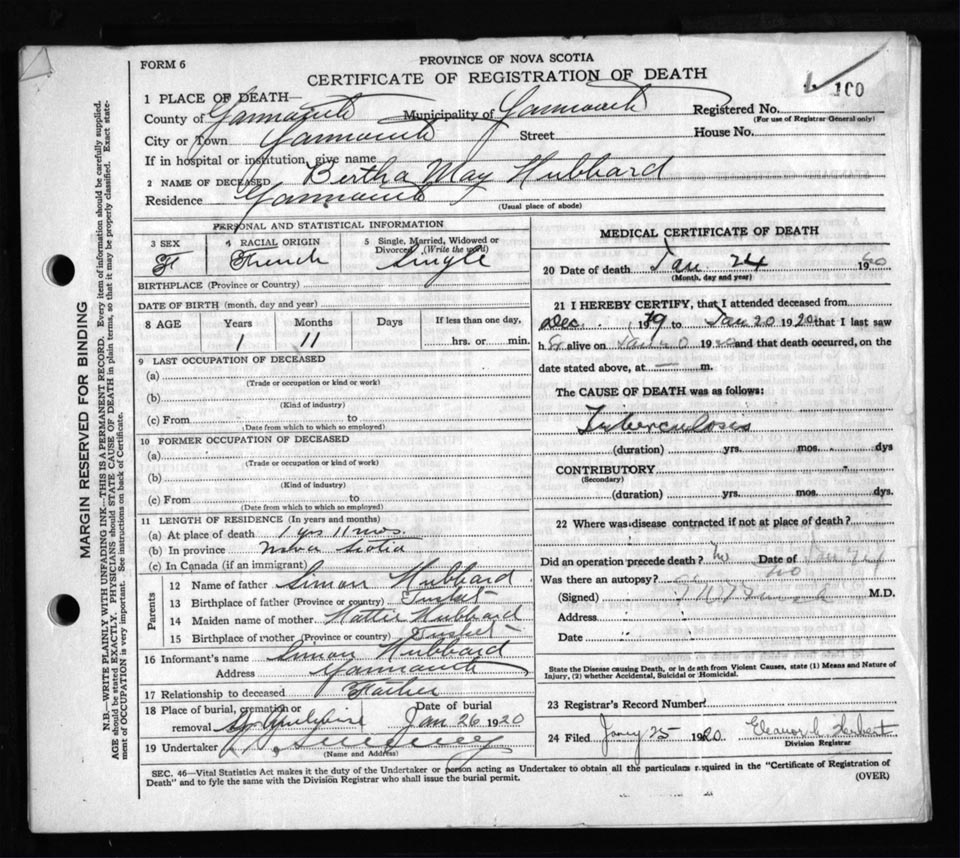 FORM 6
PROVINCE OF NOVA SCOTIA
CERTIFICATE OF REGISTRATION OF DEATH
100
1 PLACE OF DEATH—
County of Yarmouth Municipality of Yarmouth Registered No.
(For use of Registrar General only)
City or Town Yarmouth Street House No.
If in hospital or institution, give name
2 NAME OF DECEASED Bertha May Hubbard
Residence Yarmouth
(Usual place of abode)
MARGIN RESERVED FOR BINDING
N.B.—WRITE PLAINLY WITH UNFADING INK—THIS IS A PERMANENT RECORD. Every item of information should be carefully supplied.
AGE should be stated EXACTLY. PHYSICIANS should STATE CAUSE OF DEATH in plain terms, so that it may be properly classified. Exact state-
ment of OCCUPATION is very important. See instructions on back of Certificate.
PERSONAL AND STATISTICAL INFORMATION
3 SEX 4 RACIAL ORIGIN 5 Single, Married, Widowed or
Divorced (Write the word)
F French Single
BIRTHPLACE (Province or County)
DATE OF BIRTH (month, day and year)
8 AGE Years Months Days If less than one day,
1 11 hrs. or min.
9 LAST OCCUPATION OF DECEASED
(a)
(Trade or occupation or kind or work)
(b)
(Kind of industry)
(c) From to
(Date from which to which so employed)
10 FORMER OCCUPATION OF DECEASED
(a)
(Trade or occupation or kind or work)
(b)
(Kind of industry)
(c) From to
(Date from which to which so employed)
11 LENGTH OF RESIDENCE (In years and months)
(a) At place of death 1 yrs 11 mos
(b) In province Nova Scotia
(c) In Canada (if an immigrant)
Parents
12 Name of father Simon Hubbard
13 Birthplace of father (Province or country) Tusket
14 Maiden name of mother Hattie Hubbard
15 Birthplace of mother (Province or country) Tusket
16 Informant's name Simon Hubbard
Address Yarmouth
17 Relationship to deceased Father
18 Place of burial, cremation or Date of burial
removal Jan 26 1920
19 Undertaker
(Name and Address)
MEDICAL CERTIFICATE OF DEATH
20 Date of death Jan 24 1920
(Month, day and year)
21 I HEREBY CERTIFY, that I attended deceased from
Dec. 1919 to Jan 20 1920 that I last saw
h alive on 1920 and that death occurred, on the
date stated above, at — m.
The CAUSE OF DEATH was as follows:
Tuberculosis
(duration) yrs. mos. dys
CONTRIBUTORY
(Secondary)
(duration) yrs. mos. dys.
22 Where was disease contracted if not at place of death?
Did an operation precede death? No Date of
Was there an autopsy? No
(Signed) M.D.
Address
Date
State the Disease causing Death, or in death from Violent Causes, state (1) Means and Nature of
Injury, (2) whether Accidental, Suicidal or Homicidal.
23 Registrar's Record Number
24 Filed Jany 25 1920 Eleanor L. Herbert
Division Registrar
SEC. 46—Vital Statistics Act makes it the duty of the Undertaker or person acting as Undertaker to obtain all the particulars required in the "Certificate of Registration of
Death" and to fyle the same with the Division Registrar who shall issue the burial permit.
(OVER)